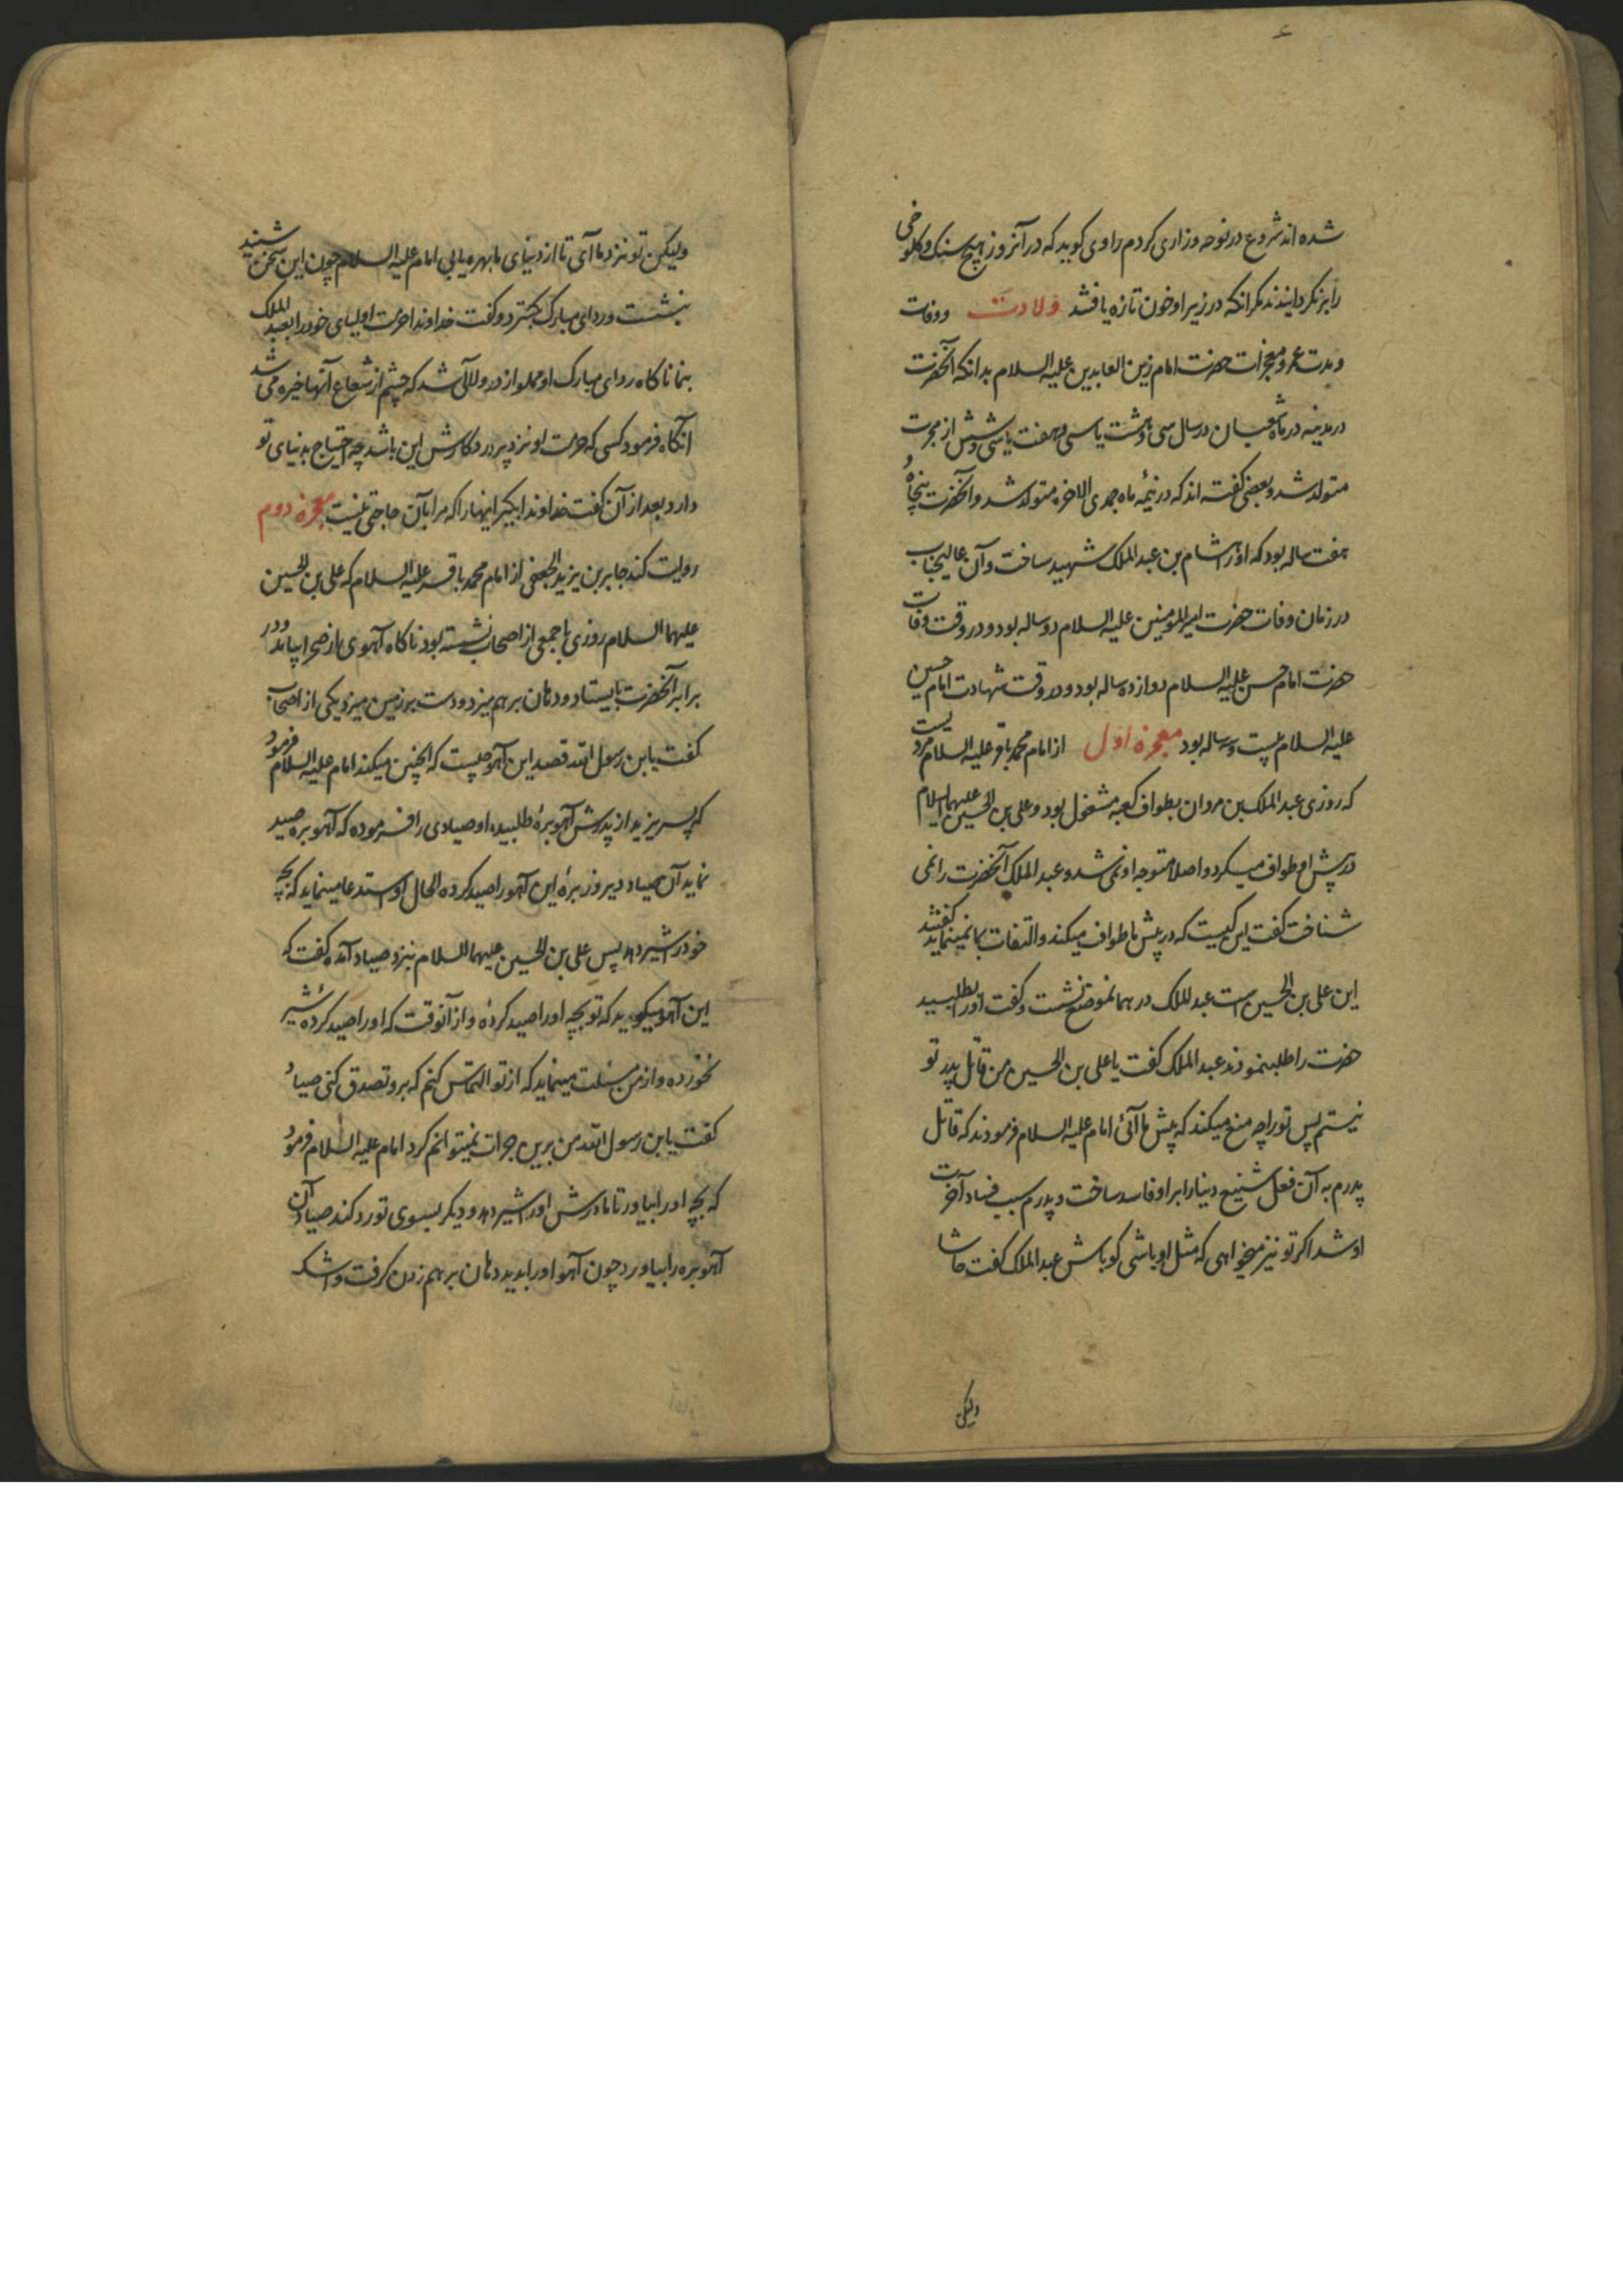 ۴
شده اند شروع در نوحه و زاری کردم راوی کوید که در آنروز هیچ سنک و کلوخی
را بر نکردانیدند مکر انکه در زیر او خون تازه یافتند ولادت و وفات
و مدت عمر و معجزات حضرت امام زین العابدین علیه السلام بدانکه آنحضرت
در مدینه در ماه شعبان در سال سی و هشت یا سی و هفت یا سی و شش از هجرت
متولد شد و بعضی کفته اند که در نیمه ماه جمدی الاخره متولد شد و آنحضرت پنجاه و
هفت ساله بود که او را هشام بن عبد الملک شهید ساخت و آن عالیجناب
در زمان وفات حضرت امیر المومنین علیه السلام دو ساله بود و در وقت وفات
حضرت امام حسن علیه السلام دوازده ساله بود و در وقت شهادت امام حسین
علیه السلام بیست و سه ساله بود معجزه اول از امام محمد باقر علیه السلام مرویست
که روزی عبد الملک بن مروان بطواف کعبه مشغول بود و علی بن الحسین علیهما السلام
در پیش او طواف میکرد و اصلا متوجه او نمی شد و عبد الملک آنحضرت را نمی
شناخت کفت این کیست که در پیش ما طواف میکند و التفات بما نمینماید کفتند
این علی بن الحسین است عبد الملک در همانموضع نشست و کفت او را بطلبید
حضرت را طلب نمودند عبد الملک کفت یا علی بن الحسین من قاتل پدر تو
نیستم پس تو را چه منع میکند که پیش ما آئی امام علیه السلام فرمودند که قاتل
پدرم به آن فعل شنیع دنیا را بر او فاسد ساخت و پدرم سبب فساد آخرت
او شد اکر تو نیز میخواهی که مثل او باشی کو باش عبد الملک کفت حاشا
ولیکن
ولیکن تو نزد ما آی تا از دنیای ما بهره یابی امام علیه السلام چون این سخن شنید
بنشست و ردای مبارک بکسترد و کفت خداوندا حرمت اولیای خود را بعبد الملک
بنما ناکاه ردای مبارک او مملو از در و لالی شد که چشم از شعاع آنها خیره می شد
آنکاه فرمود کسی که حرمت او نزد پروردکارش این باشد چه احتیاج بدنیای تو
دارد بعد از آن کفت خداوندا بکیر اینها را که مرا بآن حاجتی نیست معجزه دوم
روایت کند جابر بن یزید الجعفی از امام محمد باقر علیه السلام که علی بن الحسین
علیهما السلام روزی با جمعی از اصحاب نشسته بود ناکاه آهوی از صحرا بیامد و در
برابر آنحضرت بایستاد و دهان بر هم میزد و دست بر زمین میزد یکی از اصحاب
کفت یابن رسول الله قصد این آهو چیست که اینچنین میکند امام علیه السلام فرمود
که پسر یزید از پدرش آهو بره طلبیده او صیادی را فرموده که آهو بره صید
نماید آن صیاد دیروز بره این آهو را صید کرده الحال او استدعا مینماید که بچه
خود را شیر دهد پس علی بن الحسین علیهما السلام بنزد صیاد آمده کفت که
این آهو میکوید که تو بچه او را صید کرده و از آنوقت که او را صید کرده شیر
نخورده و از من مسئلت مینماید که از تو التماس کنم که برو تصدق کنی صیاد
کفت یابن رسول الله من برین جرات نمیتوانم کرد امام علیه السلام فرمود
که بچه او را بیاور تا مادرش او را شیر دهد و دیکر بسوی تو رد کند صیاد آن
آهو بره را بیاورد چون آهو او را بدید دهان بر هم زدن کرفت و اشک